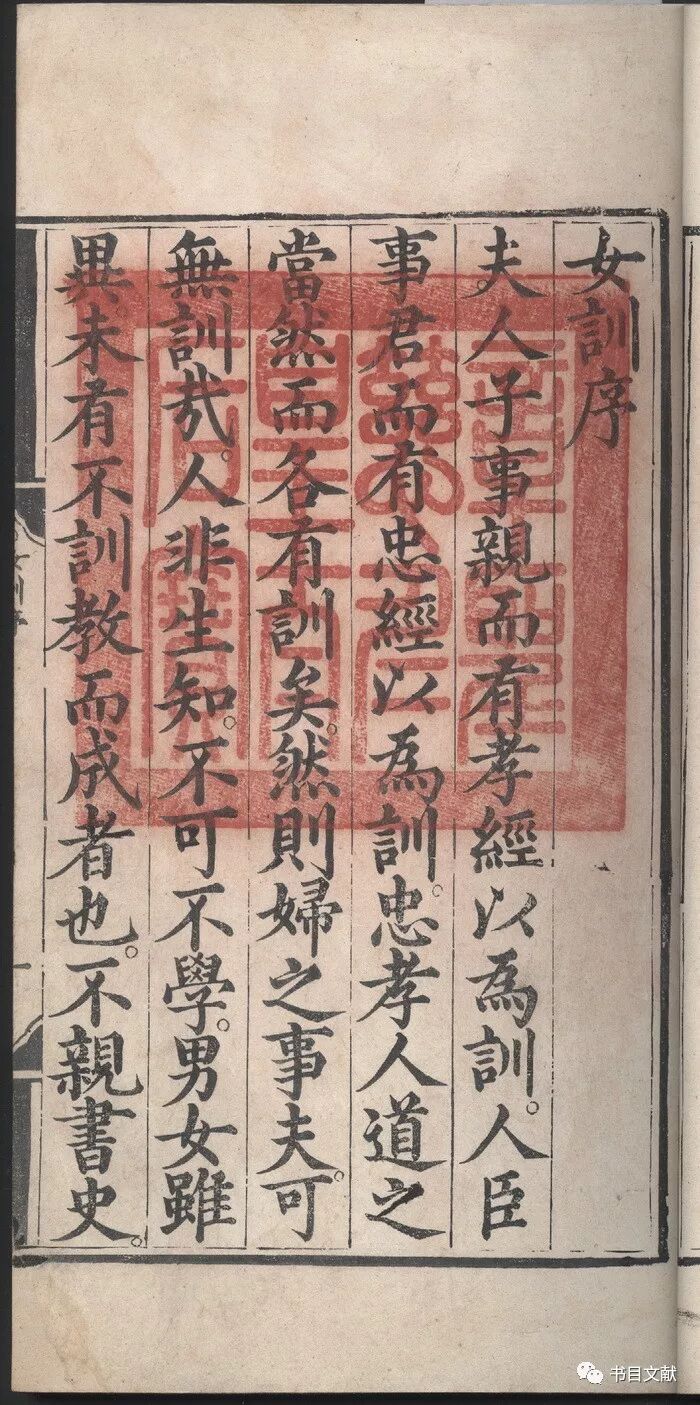 女訓序
夫人子事親而有孝經以為訓。人臣
事君而有忠經以為訓。忠孝人道之
當然而各有訓矣。然則婦之事夫。可
無訓哉。人非生知。不可不學。男女雖
異。未有不訓教而成者也。不親書史。
书目文献